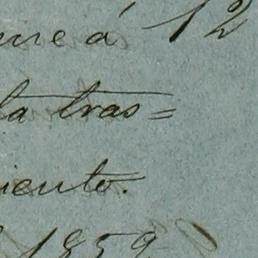 á 12
la tras=
iento.
1859